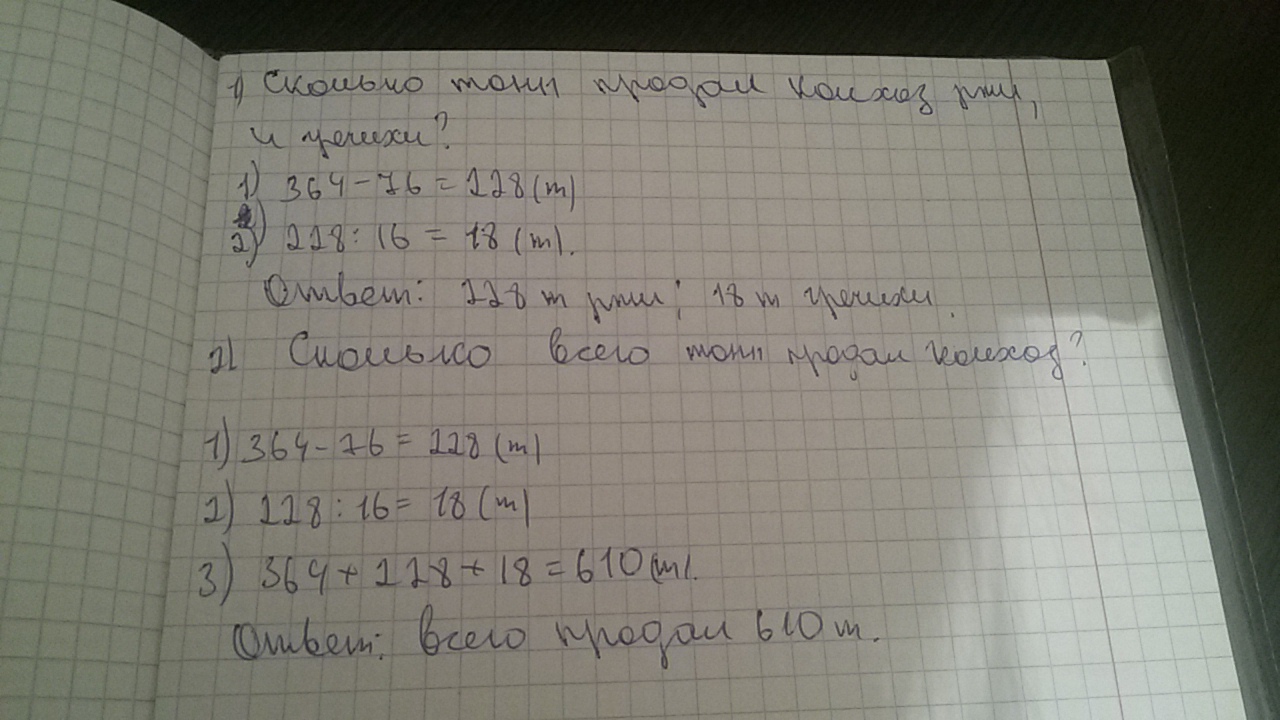 1) Сколько тонн продал колхоз ржи,
и гречихи?
1) 364-76 = 228 (т)
2) 228 : 16 = 18 (т).
Ответ: 228 т ржи; 18 т гречихи.
2) Сколько всего тонн продал колхоз?
1) 364-76 = 228 (т)
2) 228 : 16 = 18 (т)
3) 364 + 228 + 18 = 610 (т).
Ответ: всего продал 610 т.